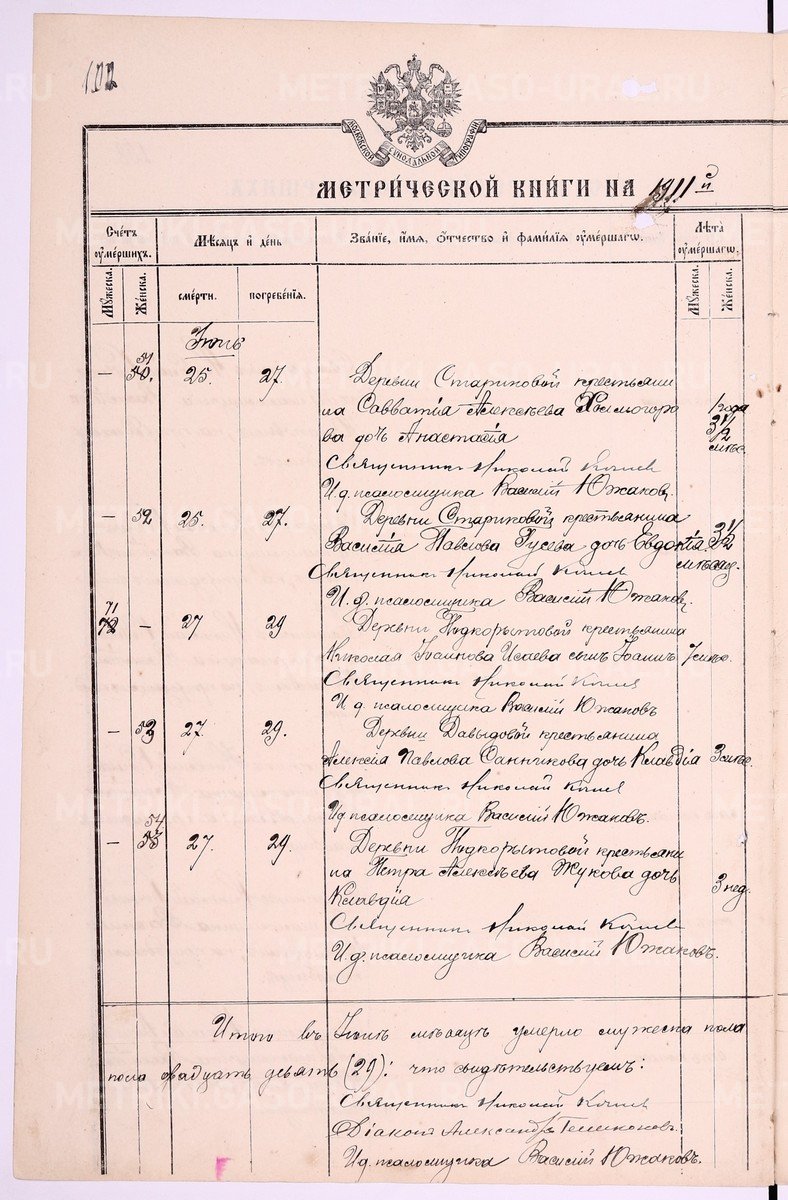 102
МОСКОВСКОЙ СѴНОДАЛЬНОЙ ТИПОГРАФІИ
МЕТРИ́ЧЕСКОЙ КНИ́ГИ НА 1911й
Сче́тъ оумершихъ.
Мѣсяцъ и день
Зва́ніе, и́мя, о́тчество и фами́лія оуме́ршагѡ.
Лѣта оуме́ршагѡ.
Мꙋжеска.
Же́нска.
сме́рти.
погребе́нія.
Мꙋжеска.
Же́нска.
Іюль
51
— 50. 25. 27. Деревни Стариковой крестьяни
на Савватія Алексѣева Холмогоро 1 года
ва дочь Анастасія 3 1/2 мѣс.
Священникъ Николай
И. д. псаломщика Василій Южаковъ.
— 52 25. 27. Деревни Стариковой крестьянина
Василія Павлова Гусева дочь Евдокія. 3 1/2
мѣсяц.
Священникъ Николай
И. д. псаломщика Василій Южаковъ.
71
72 — 27 29 Деревни Подкорытовой крестьянина
Николая Іоаннова Исаева сынъ Іоаннъ 7 мѣс.
Священникъ Николай
И. д. псаломщика Василій Южаковъ
— 53 27. 29. Деревни Давыдовой крестьянина
Алексія Павлова Санникова дочь Клавдія 3 мѣс.
Священникъ Николай
И д псаломщика Василій Южаковъ.
54
— 55 27. 29. Деревни Подкорытовой крестьяни
на Петра Алексѣева Жукова дочь 3 нед.
Клавдія
Священникъ Николай
И. д. псаломщика Василій Южаковъ.
Итого въ Іюлѣ мѣсяцѣ умерло мужеска пола
пола двадцать девять (29): что свидѣтельствуемъ:
Священникъ Николай
Діаконъ Александръ
И д. псаломщика Василій Южаковъ.